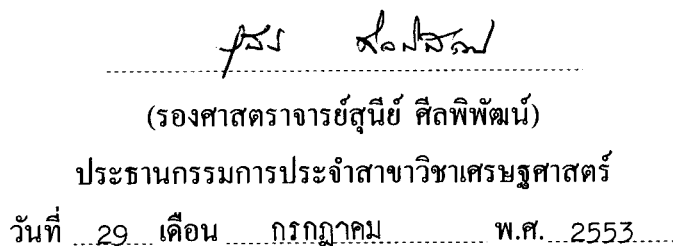 (รองศาสตราจารย์สุนีย์ ศีลพิพัฒน์)
ประธานกรรมการประจำสาขาวิชาเศรษฐศาสตร์
วันที่ 29 เดือน กรกฎาคม พ.ศ. 2553